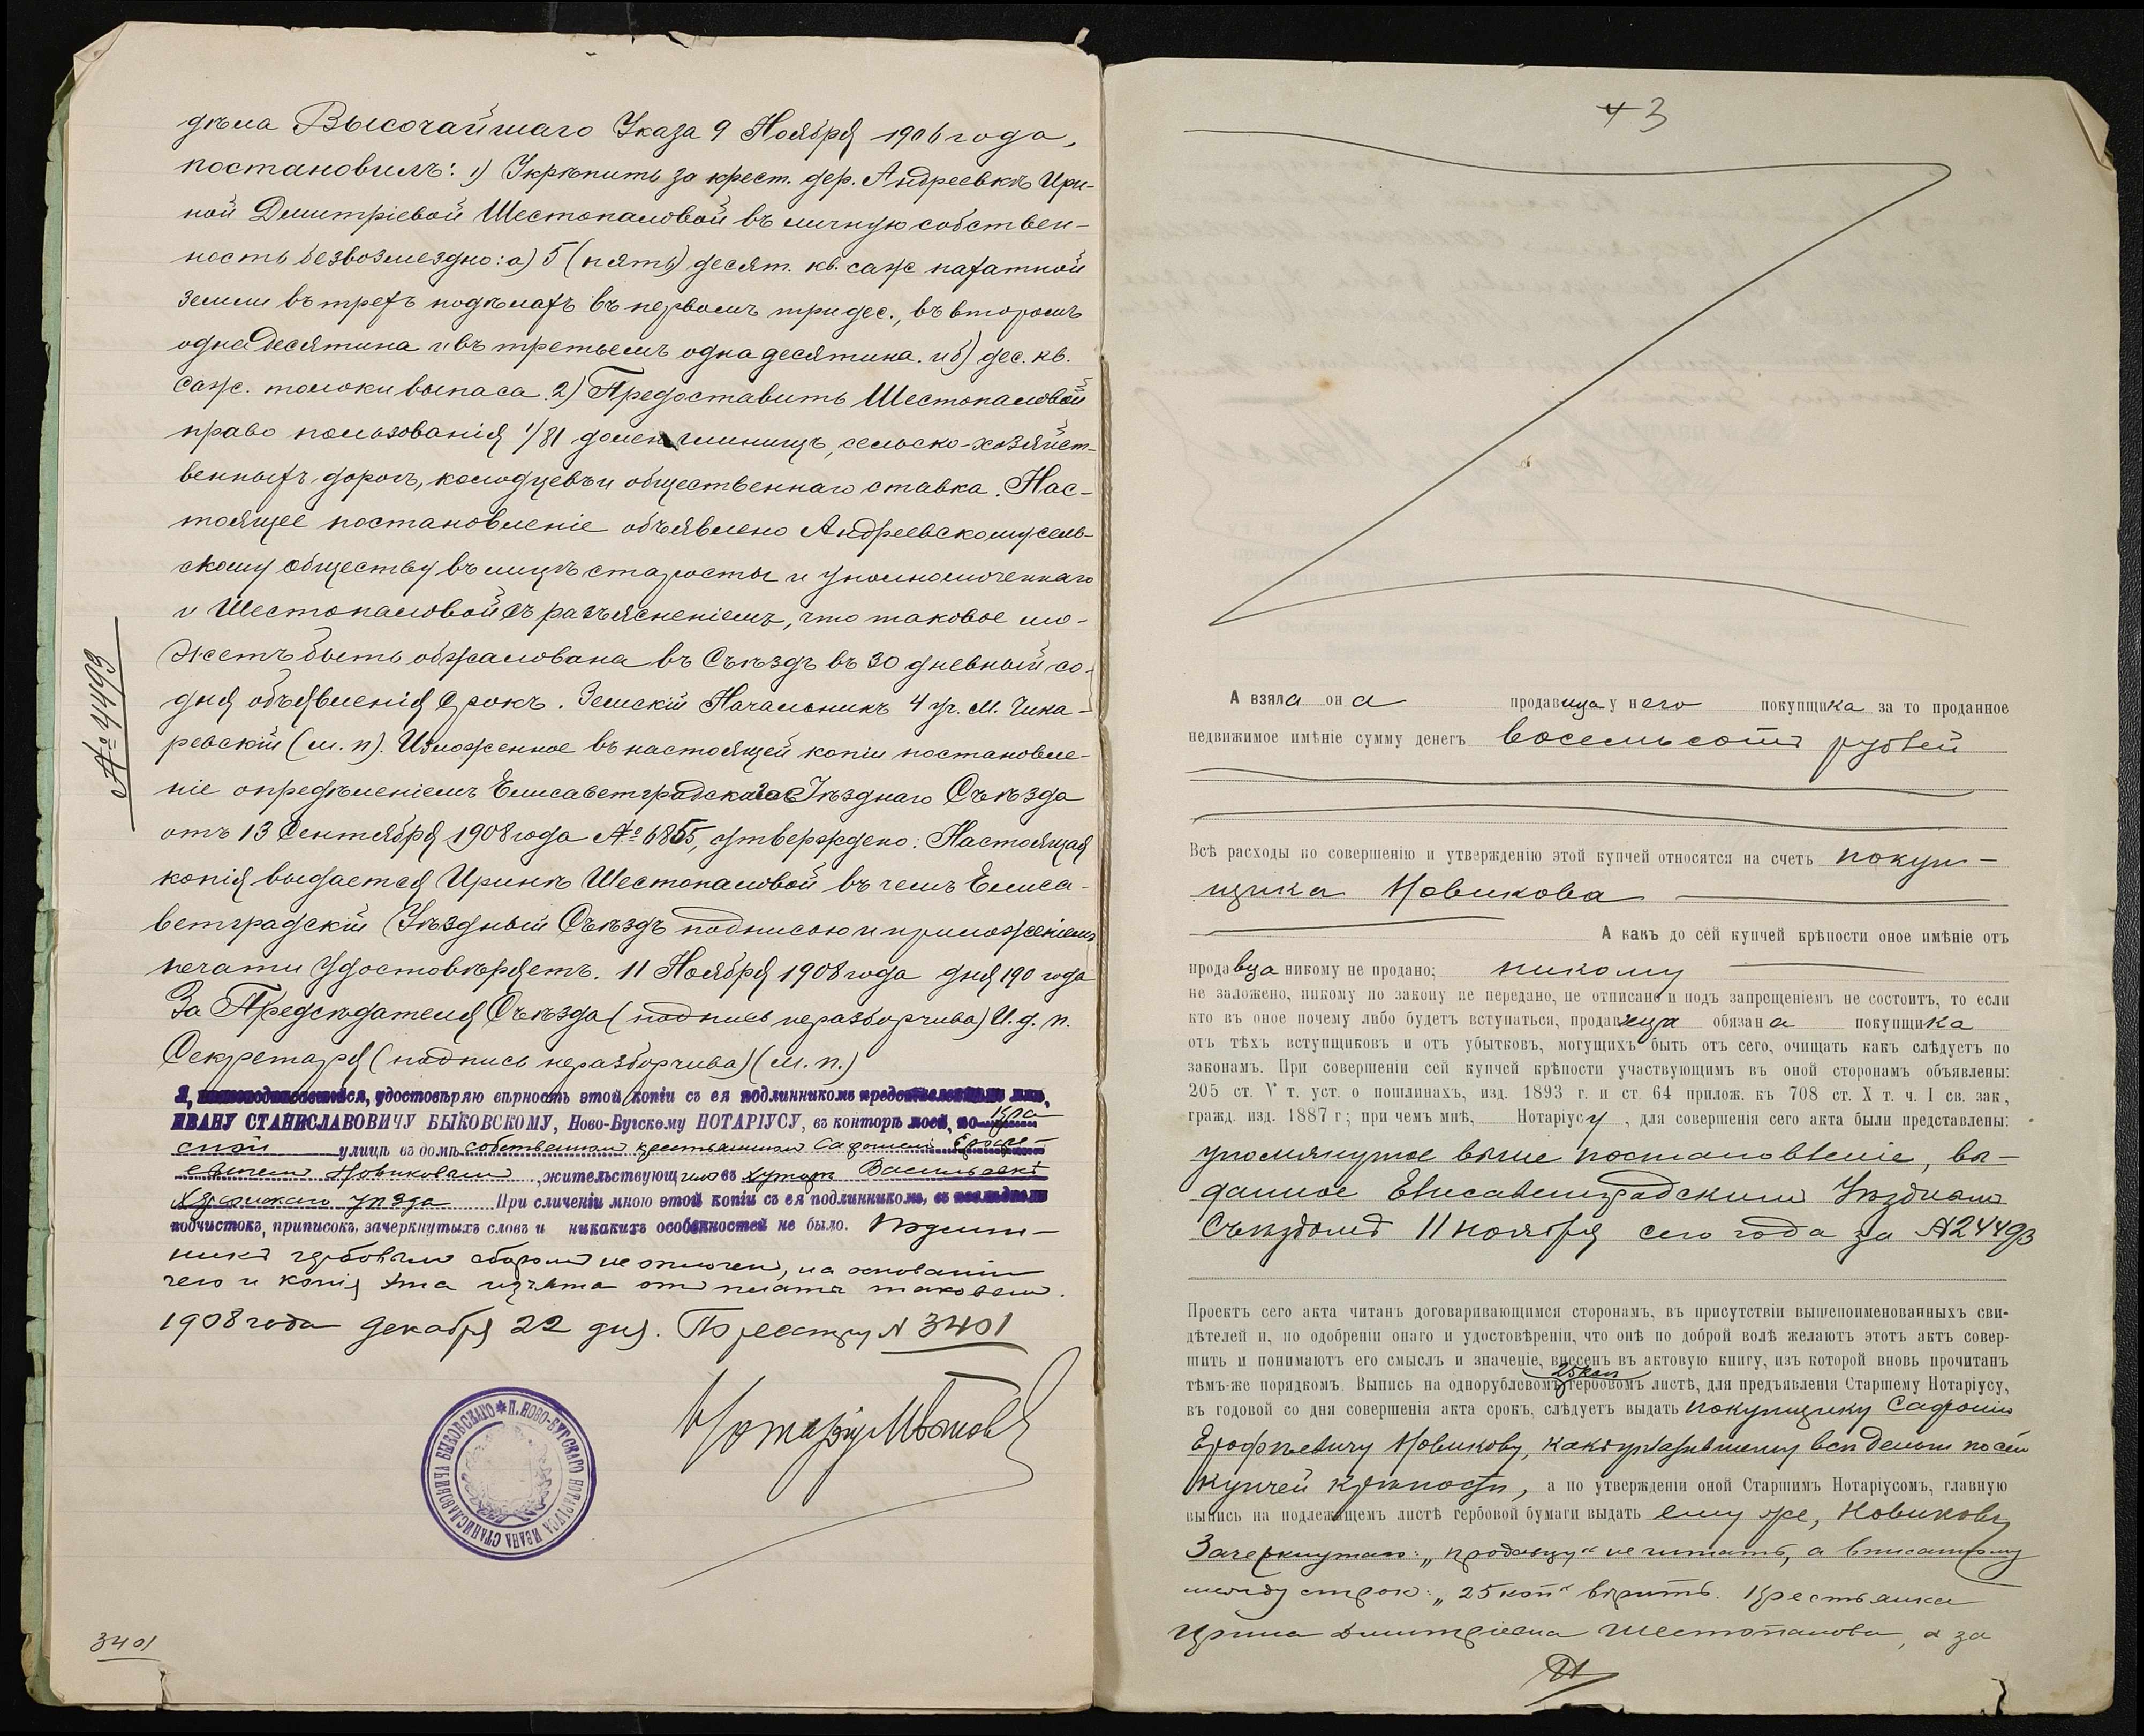 дѣла Высочайшаго Указа 9 Ноября 1906 года,
постановилъ: 1) Укрѣпить за крест. дер. Андреевкѣ Ири-
ной Дмитріевой Шестопаловой въ личную собствен-
ность безвозмездно: а) 5 (пять) десят. кв. саж пахатной
земли въ трехъ подѣлахъ въ первомъ три дес., въ второмъ
одна десятина и въ третьемъ одна десятина. и б) дес. кв.
саж. толоки выпаса. 2) Предоставить Шестопаловой
право пользованія 1/81 долей глинищъ, сельско-хозяйст-
венныхъ дорогъ, колодцевъ и общественнаго ставка. Нас-
тоящее постановленіе объявлено Андреевскому сель-
скому обществу въ лицѣ старосты и уполномоченнаго
и Шестопаловой съ разъясненіемъ, что таковое мо-
жетъ быть обжалована въ Съѣздъ въ 30 дневный со
дня объявленія срокъ. Земскій Начальникъ 4 уч. М. Чика-
ревскій (м. п). Изложенное въ настоящей копіи постановле-
ніе опредѣленіемъ Елисаветградскаго Уѣзднаго Съѣзда
отъ 13 Сентября 1908 года № 6855, утверждено: Настоящая
копія выдается Иринѣ Шестопаловой въ чемъ Елиса-
ветградскій Уѣздный Съѣздъ подписью и приложеніемъ
печати удостовѣряетъ. 11 Ноября 1908 года дня 190 года
За Предсѣдателя Съѣзда (подпись неразборчива) И. д. п.
Секретаря (подпись неразборчива) (м. п.)
№ 4493
Я, нижеподписавшійся, удостовѣряю вѣрность этой копіи съ ея подлинникомъ представленнымъ мнѣ,
ИВАНУ СТАНИСЛАВОВИЧУ БЫКОВСКОМУ, Ново-Бугскому НОТАРІУСУ, въ конторѣ моей, по
улицѣ въ домѣ собственном крестьянином Сафоніем Ерофе-
евичем Новиковым, жительствующим въ хуторѣ Васильевкѣ
Херсонскаго уѣзда При сличеніи мною этой копіи съ ея подлинникомъ, въ послѣднемъ
подчистокъ, приписокъ, зачеркнутыхъ словъ и никакихъ особенностей не было. Подлин-
никъ гербовым сбором не оплочен, на основаніи
чего и копія эта изъята от платы таковым.
1908 года декабря 22 дня. По реестру № 3401
Нотаріус Быковскій
И. НОВО-БУГСКАГО НОТАРІУСА ИВАНА СТАНИСЛАВОВИЧА БЫКОВСКАГО
3401
43
А взяла она продавица у него покупщика за то проданное
недвижимое имѣніе сумму денегъ восемьсотъ рублей
Всѣ расходы по совершенію и утвержденію этой купчей относятся на счетъ покуп-
щика Новикова
А какъ до сей купчей крѣпости оное имѣніе отъ
продавца никому не продано; никому
не заложено, никому по закону не передано, не отписано и подъ запрещеніемъ не состоитъ, то если
кто въ оное почему либо будетъ вступаться, продавица обязана покупщика
отъ тѣхъ вступщиковъ и отъ убытковъ, могущихъ быть отъ сего, очищать какъ слѣдуетъ по
законамъ. При совершеніи сей купчей крѣпости участвующимъ въ оной сторонамъ объявлены:
205 ст. V т. уст. о пошлинахъ, изд. 1893 г. и ст. 64 прилож. къ 708 ст. X т. ч. I св. зак,
гражд. изд. 1887 г; при чемъ мнѣ, Нотаріусу, для совершенія сего акта были представлены:
упомянутое выше постановленіе, вы-
данное Елисаветградским Уѣздным
Съѣздомъ 11 ноября сего года за № 4493
Проектъ сего акта читанъ договаривающимся сторонамъ, въ присутствіи вышепоименованныхъ сви-
дѣтелей и, по одобреніи онаго и удостовѣреніи, что онѣ по доброй волѣ желаютъ этотъ актъ совер-
шить и понимаютъ его смыслъ и значеніе, внесенъ въ актовую книгу, изъ которой вновь прочитанъ
25 коп
тѣмъ-же порядкомъ. Выпись на однорублевомъ гербовомъ листѣ, для предъявленія Старшему Нотаріусу,
въ годовой со дня совершенія акта срокъ, слѣдуетъ выдать покупщику Сафонію
Ерофѣевичу Новикову, какъ управившему всѣ деньги по сей
купчей крѣпости, а по утвержденіи оной Старшимъ Нотаріусомъ, главную
выпись на подлежащемъ листѣ гербовой бумаги выдать ему же, Новикову
Зачеркнутаго: „продавцу“ не читать, а вписанному
между строк: „25 коп“ вѣрить. Крестьянка
Ирина Дмитріевна Шестопалова, а за